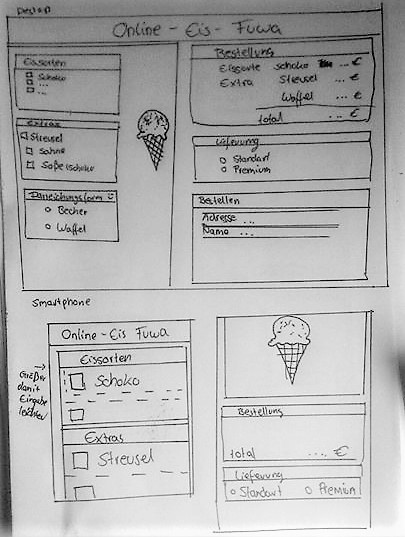 Design
Online - Eis - Fuwa
Eissorten
Schoko
...
...
Extras
Streusel
Sahne
Soße (Schoko)
Darreichungsform
Becher
Waffel
Bestellung
Eissorte Schoko ... €
Extra Streusel ... €
Waffel ... €
total ... €
Lieferung
Standart
Premium
Bestellen
Adresse ...
Name ...
Smartphone
Online - Eis Fuwa
Eissorten
Schoko
Extras
Streusel
→
Größer
damit
Eingabe
leichter
Bestellung
total .... €
Lieferung
Standart Premium